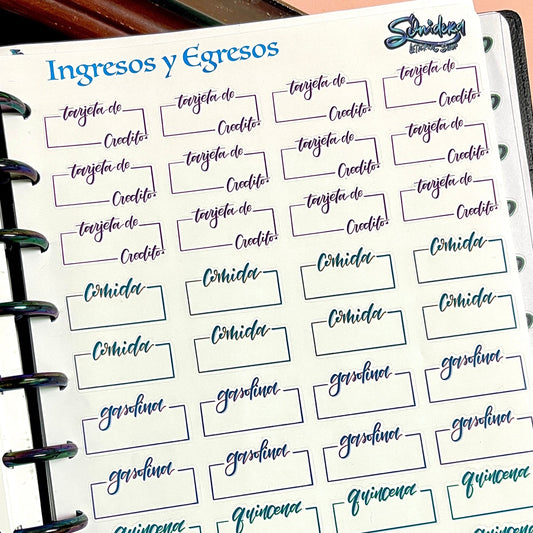 Ingresos y Egresos
tarjeta de tarjeta de tarjeta de tarjeta de
Credito. Credito. Credito. Credito.
tarjeta de tarjeta de tarjeta de tarjeta de
Credito. Credito. Credito. Credito.
tarjeta de tarjeta de tarjeta de tarjeta de
Credito. Credito. Credito. Credito.
Comida Comida Comida Comida
Comida Comida Comida Comida
gasolina gasolina gasolina gasolina
gasolina gasolina gasolina gasolina
quincena quincena quincena quincena